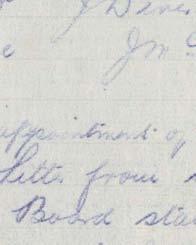 J Diver
appointment of
Letter from
Board sta